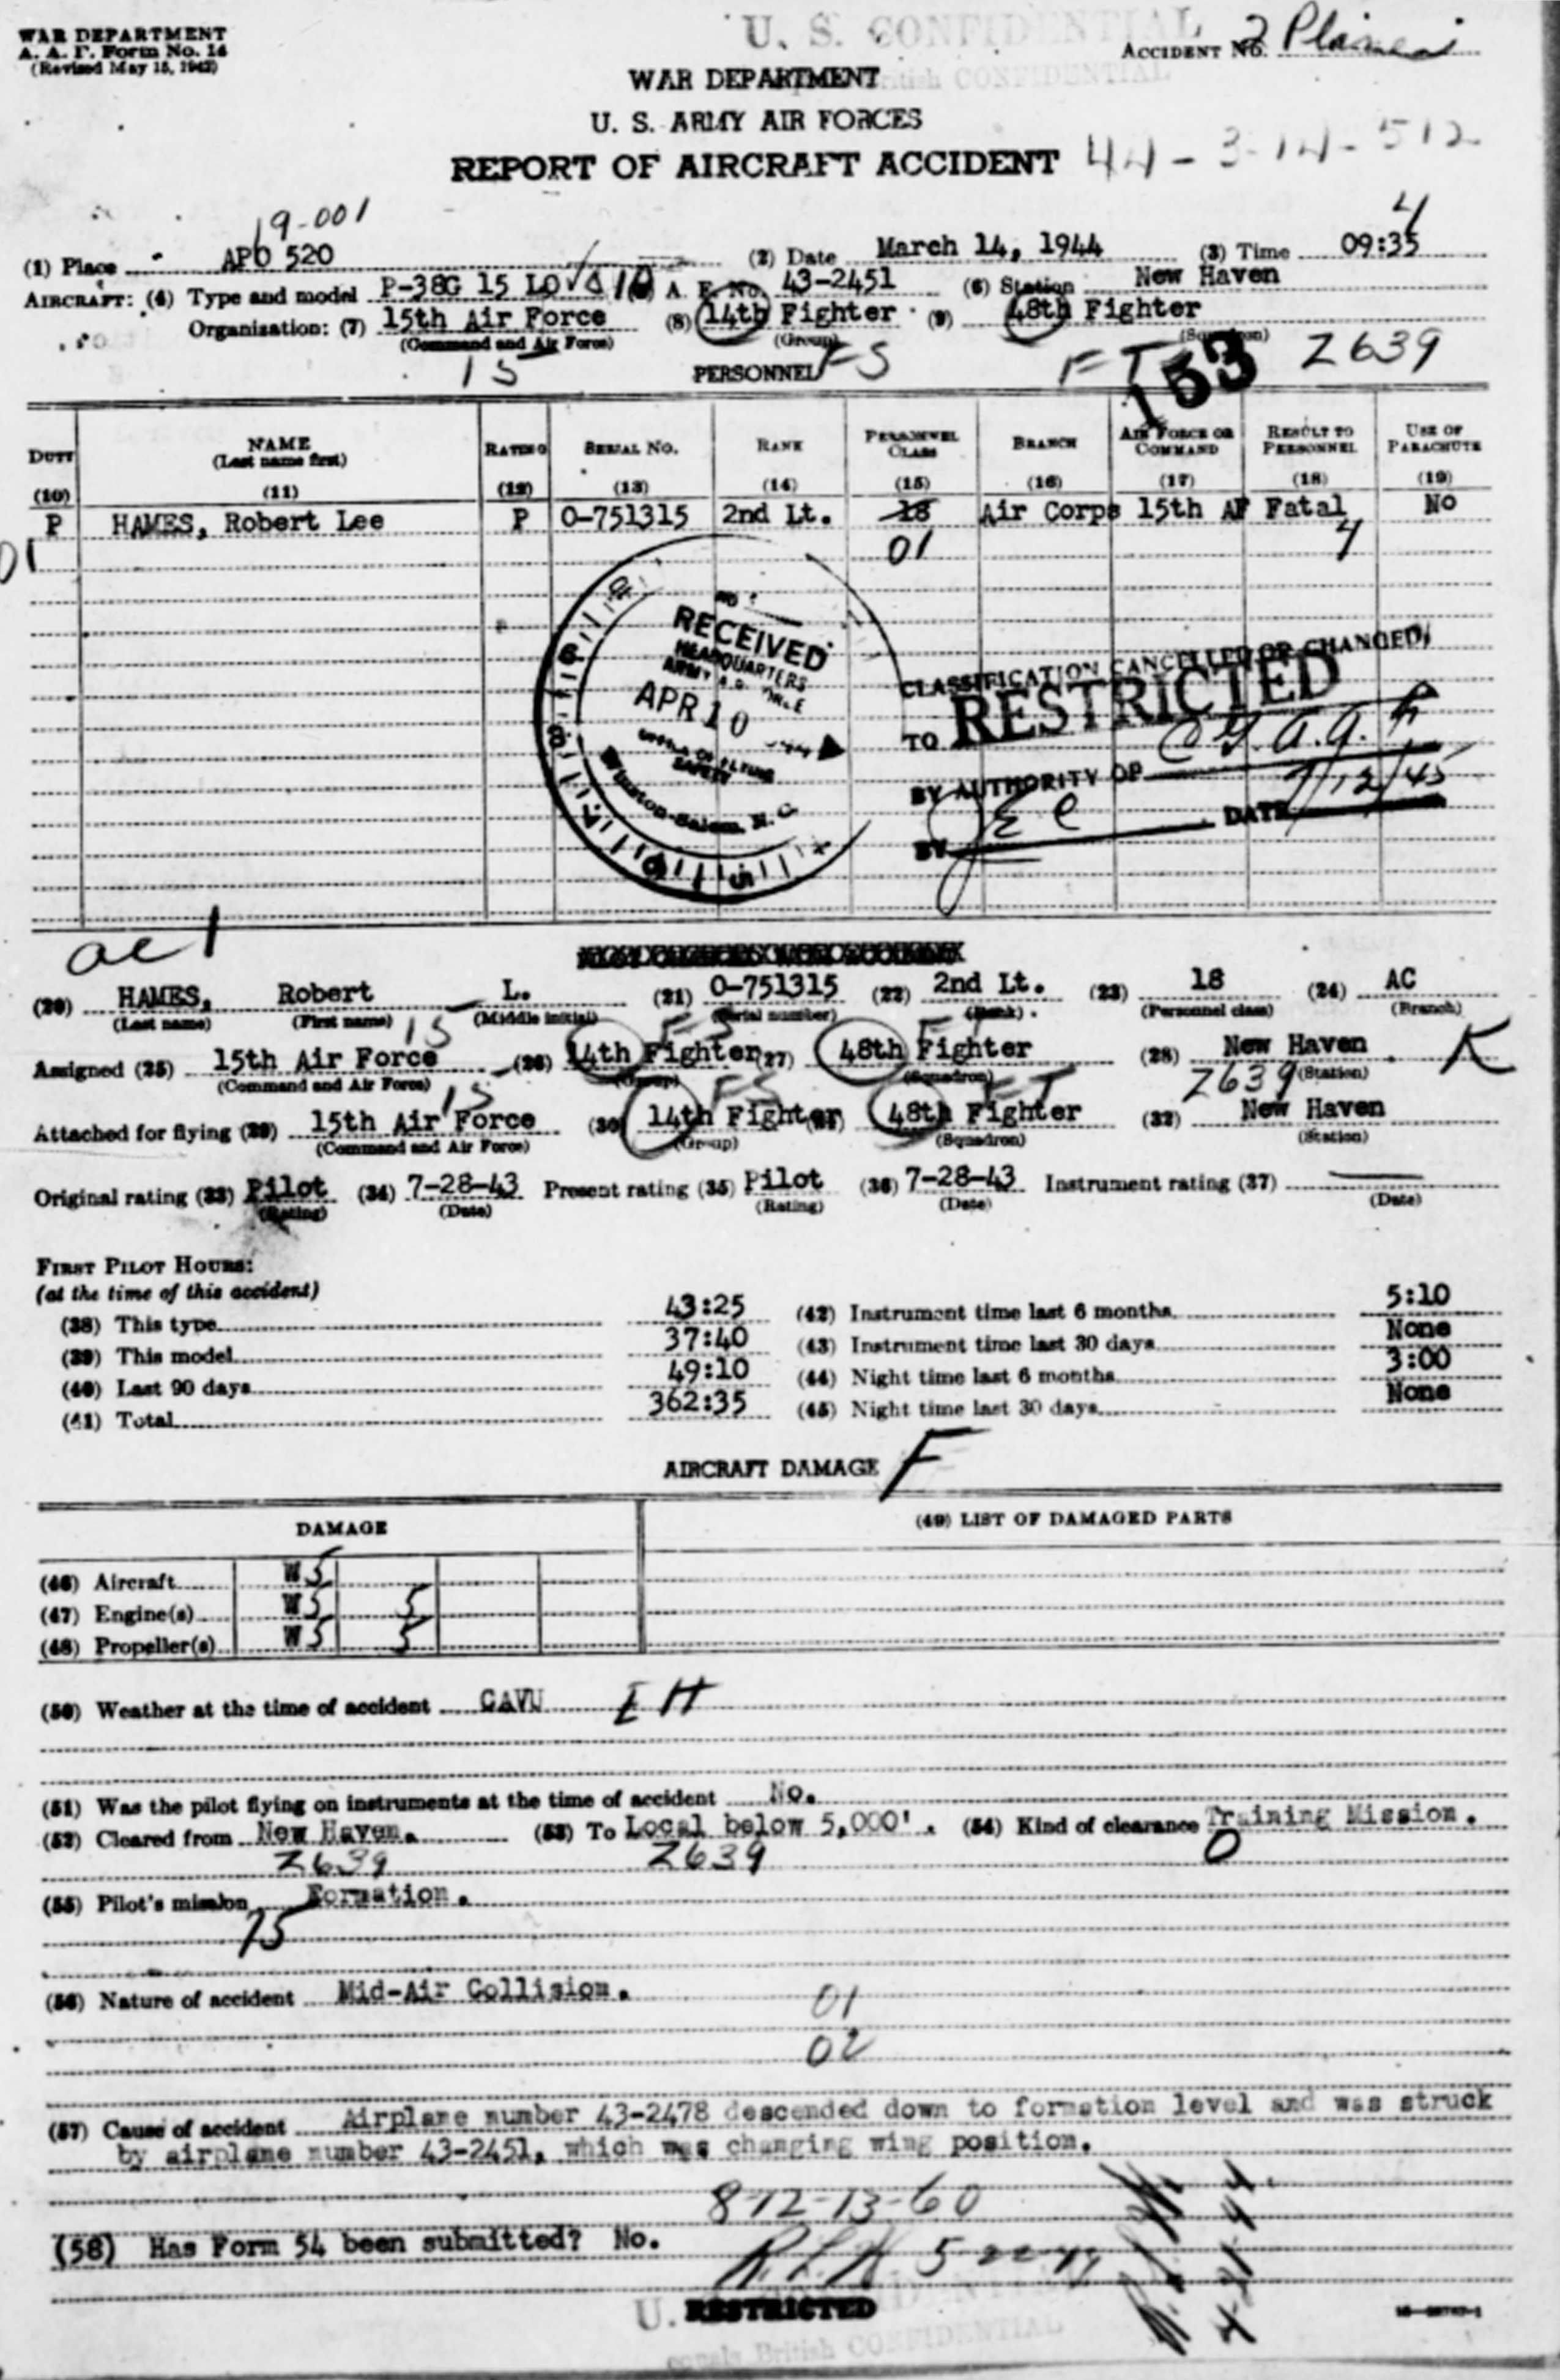 WAR DEPARTMENT
A. A. F. Form No. 14
(Revised May 15, 1942)
U. S. CONFIDENTIAL
British CONFIDENTIAL
ACCIDENT No. 2 Planes
WAR DEPARTMENT
U. S. ARMY AIR FORCES
REPORT OF AIRCRAFT ACCIDENT 44-3-14-512
19-001
4
(1) Place APO 520 (2) Date March 14, 1944 (3) Time 09:35
AIRCRAFT: (4) Type and model P-38G 15 LO A. F. No. 43-2451 (6) Station New Haven
Organization: (7) 15th Air Force (8) 14th Fighter (9) 48th Fighter
(Command and Air Force) (Group) (Squadron)
15 PERSONNEL FS FT 153 Z639
DUTY NAME (Last name first) RATING SERIAL NO. RANK PERSONNEL CLASS BRANCH AIR FORCE OR COMMAND RESULT TO PERSONNEL USE OF PARACHUTE
(10) (11) (12) (13) (14) (15) (16) (17) (18) (19)
P HAMES, Robert Lee P O-751315 2nd Lt. 18 Air Corps 15th AF Fatal No
01 01 4
RECEIVED
HEADQUARTERS
APR 10
OFFICE OF FLYING
SAFETY
Winston-Salem, N. C.
CLASSIFICATION CANCELLED OR CHANGED
TO RESTRICTED
BY AUTHORITY OF
BY DATE 7/12/45
(20) HAMES, Robert L. (21) O-751315 (22) 2nd Lt. (23) 18 (24) AC
(Last name) (First name) (Middle initial) (Serial number) (Rank) (Personnel class) (Branch)
15 FS FT
Assigned (25) 15th Air Force (26) 14th Fighter (27) 48th Fighter (28) New Haven K
(Command and Air Force) (Group) (Squadron) Z639 (Station)
15 FS FT
Attached for flying (29) 15th Air Force (30) 14th Fighter (31) 48th Fighter (32) New Haven
(Command and Air Force) (Group) (Squadron) (Station)
Original rating (33) Pilot (34) 7-28-43 Present rating (35) Pilot (36) 7-28-43 Instrument rating (37)
(Rating) (Date) (Rating) (Date) (Date)
FIRST PILOT HOURS:
(at the time of this accident)
(38) This type 43:25 (42) Instrument time last 6 months 5:10
(39) This model 37:40 (43) Instrument time last 30 days None
(40) Last 90 days 49:10 (44) Night time last 6 months 3:00
(41) Total 362:35 (45) Night time last 30 days None
AIRCRAFT DAMAGE F
DAMAGE (49) LIST OF DAMAGED PARTS
(46) Aircraft W5
(47) Engine(s) W5 5
(48) Propeller(s) W5 5
(50) Weather at the time of accident CAVU
(51) Was the pilot flying on instruments at the time of accident No.
(52) Cleared from New Haven. (53) To Local below 5,000'. (54) Kind of clearance Training Mission.
Z639 Z639 0
(55) Pilot's mission Formation.
15
(56) Nature of accident Mid-Air Collision.
01
02
(57) Cause of accident Airplane number 43-2478 descended down to formation level and was struck
by airplane number 43-2451, which was changing wing position.
812-13-60
(58) Has Form 54 been submitted? No.
RESTRICTED
equals British CONFIDENTIAL